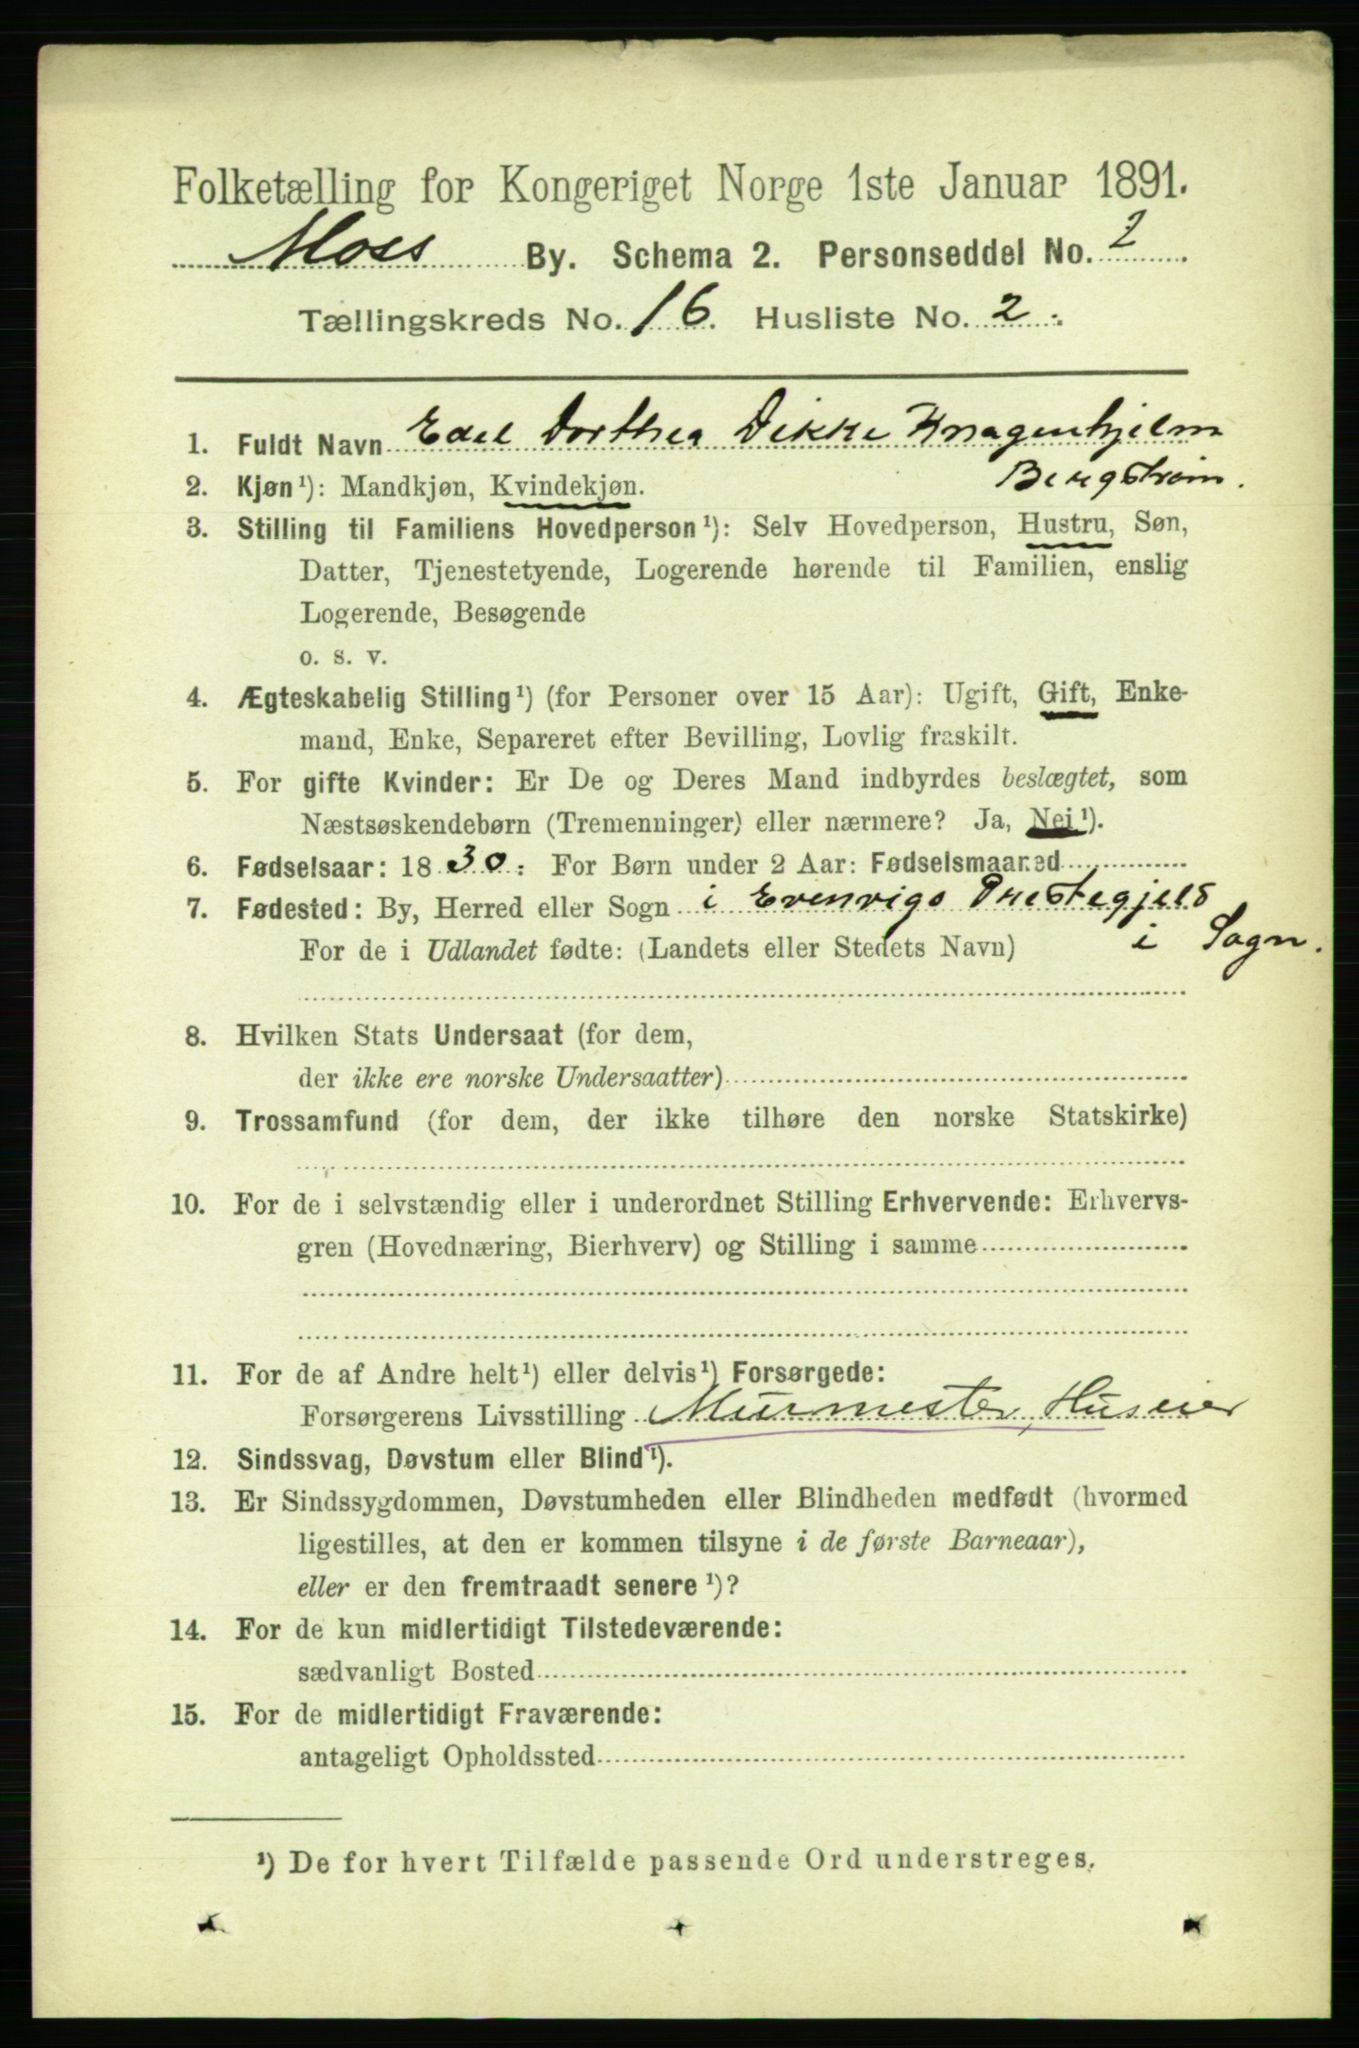 Folketælling for Kongeriget Norge 1ste Januar 1891.
Moss By. Schema 2. Personseddel No. 2
Tællingskreds No. 16. Husliste No. 2.
1. Fuldt Navn Edel Dorthea Dikke Knagenhjelm
Bergstrøm.
2. Kjøn¹): Mandkjøn, Kvindekjøn.
3. Stilling til Familiens Hovedperson¹): Selv Hovedperson, Hustru, Søn,
Datter, Tjenestetyende, Logerende hørende til Familien, enslig
Logerende, Besøgende
o. s. v.
4. Ægteskabelig Stilling¹) (for Personer over 15 Aar): Ugift, Gift, Enke-
mand, Enke, Separeret efter Bevilling, Lovlig fraskilt.
5. For gifte Kvinder: Er De og Deres Mand indbyrdes beslægtet, som
Næstsøskendebørn (Tremenninger) eller nærmere? Ja, Nei¹).
6. Fødselsaar: 1830. For Børn under 2 Aar: Fødselsmaaned
7. Fødested: By, Herred eller Sogn i Evenvigs Prestegjeld
For de i Udlandet fødte: (Landets eller Stedets Navn) i Sogn.
8. Hvilken Stats Undersaat (for dem,
der ikke ere norske Undersaatter)
9. Trossamfund (for dem, der ikke tilhøre den norske Statskirke)
10. For de i selvstændig eller i underordnet Stilling Erhvervende: Erhvervs-
gren (Hovednæring, Bierhverv) og Stilling i samme
11. For de af Andre helt¹) eller delvis¹) Forsørgede:
Forsørgerens Livsstilling Murmester, Huseier
12. Sindssvag, Døvstum eller Blind¹).
13. Er Sindssygdommen, Døvstumheden eller Blindheden medfødt (hvormed
ligestilles, at den er kommen tilsyne i de første Barneaar),
eller er den fremtraadt senere¹)?
14. For de kun midlertidigt Tilstedeværende:
sædvanligt Bosted
15. For de midlertidigt Fraværende:
antageligt Opholdssted
¹) De for hvert Tilfælde passende Ord understreges.